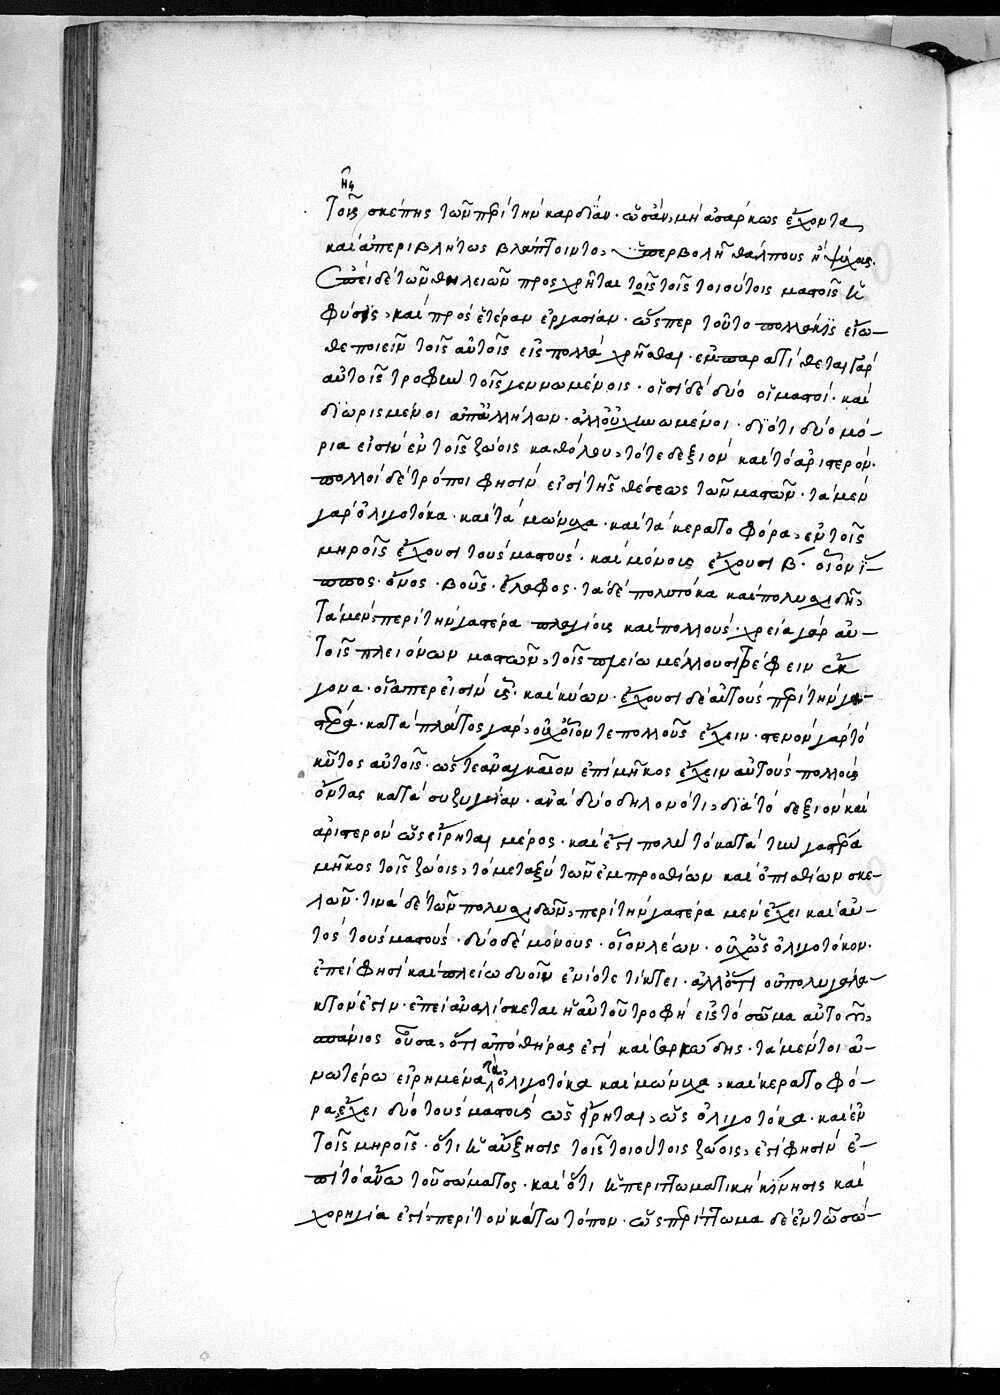 τοῖς σκέπης τῶν περὶ τὴν καρδίαν· ὡς ἂν μὴ ἀσάρκως ἔχοντα
καὶ ἀπεριβλήτως βλάπτοιντο, ὑπερβολῇ θάλπους ἢ ψύχους.
ἐπεὶ δὲ τῶν θηλειῶν προσχρῆται τοῖς τοῖς τοιούτοις μαστοῖς ἡ
φύσις, καὶ πρὸς ἑτέραν ἐργασίαν· ὥσπερ τοῦτο πολλάκις εἴω-
θε ποιεῖν τοῖς αὐτοῖς εἰς πολλὰ χρῆσθαι· ἐμπαρατίθεται γὰρ
αὐτοῖς τροφὴν τοῖς γεννωμένοις· οἷς δὲ δύο οἱ μαστοί· καὶ
διωρισμένοι ἀπ' ἀλλήλων· ἀλλ' οὐχ ἡνωμένοι· διότι δύο μό-
ρια εἰσὶν ἐν τοῖς ζώοις καθόλου, τό τε δεξιὸν καὶ τὸ ἀριστερόν·
πολλοὶ δὲ τρόποι φησὶν εἰσὶ τῆς θέσεως τῶν μαστῶν· τὰ μὲν
γὰρ ὀλιγοτόκα· καὶ τὰ μώνυχα· καὶ τὰ κερατοφόρα, ἐν τοῖς
μηροῖς ἔχουσι τοὺς μαστούς· καὶ μόνους ἔχουσι β· οἷον ἵ-
ππος· ὄνος· βοῦς· ἔλαφος· τὰ δὲ πολυτόκα καὶ πολυσχιδῆ,
τὰ μὲν περὶ τὴν γαστέρα πλαγίους καὶ πολλούς· χρεία γὰρ αὐ-
τοῖς πλειόνων μαστῶν, τοῖς πλείω μέλλουσι τρέφειν ἔκ-
γονα· οἷάπερ εἰσὶν ὗς· καὶ κύων· ἔχουσι δὲ αὐτοὺς περὶ τὴν γα-
στέρα· κατὰ πλάτος γὰρ, οὐχ οἷόν τε πολλοὺς ἔχειν· στενὸν γὰρ τὸ
κῦτος αὐτοῖς· ὥστε ἀναγκαῖον ἐπὶ μῆκος ἔχειν αὐτοὺς πολλοὺς
ὄντας κατὰ συζυγίαν· ἀνὰ δύο δηλονότι, διὰ τὸ δεξιὸν καὶ
ἀριστερὸν ὡς εἴρηται μέρος· καὶ ἔστι πολὺ τὸ κατὰ τὴν γαστέρα
μῆκος τοῖς ζώοις, τὸ μεταξὺ τῶν ἐμπροσθίων καὶ ὀπισθίων σκε-
λῶν· τινὰ δὲ τῶν πολυσχιδῶν, περὶ τὴν γαστέρα μὲν ἔχει καὶ αὐ-
τὸς τοὺς μαστούς· δύο δὲ μόνους· οἷον λέων· οὐχ ὡς ὀλιγοτόκον·
ἐπεὶ φησὶ καὶ πλείω δυοῖν ἐνίοτε τίκτει· ἀλλ' ὅτι οὐ πολυγάλα-
κτόν ἐστιν· ἐπεὶ ἀναλίσκεται ἡ αὐτοῦ τροφὴ εἰς τὸ σῶμα αὐτοῦ,
σπάνιος οὖσα, ὅτι ἀπὸ θήρας ἐστὶ καὶ σαρκώδης· τὰ μέντοι ἀ-
νωτέρω εἰρημένα τὰ ὀλιγοτόκα καὶ μώνυχα, καὶ κερατοφό-
ρα, ἔχει δύο τοὺς μαστοὺς ὡς εἴρηται, ὡς ὀλιγοτόκα· καὶ ἐν
τοῖς μηροῖς· ὅτι ἡ αὔξησις τοῖς τοιούτοις ζώοις, ἐστὶ φησὶν ἐ-
πὶ τὸ ἄνω τοῦ σώματος· καὶ ὅτι ἡ περιττωματικὴ κίνησις καὶ
χορηγία ἐστὶ περὶ τὸν κάτω τόπον· ὡς περίττωμα δὲ ἐν τῷ σώ-